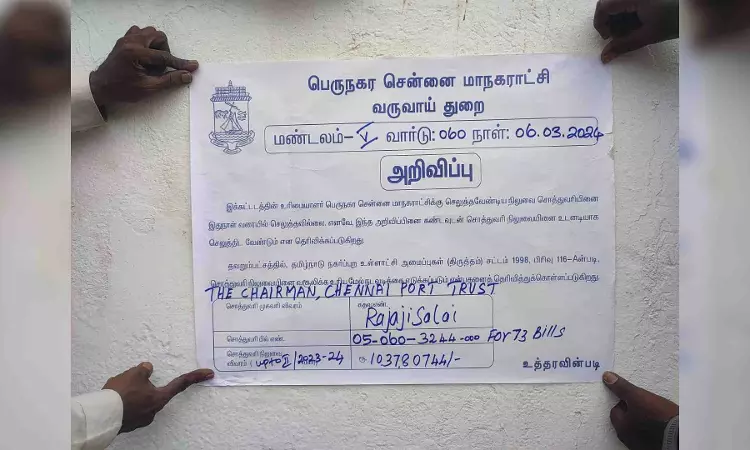 பெருநகர சென்னை மாநகராட்சி
வருவாய் துறை
மண்டலம்-V வார்டு: 060 நாள்: 06.03.2024
அறிவிப்பு
இக்கட்டடத்தின் உரிமையாளர் பெருநகர சென்னை மாநகராட்சிக்கு செலுத்தவேண்டிய நிலுவை சொத்துவரியினை
இதுநாள் வரையில் செலுத்தவில்லை. எனவே, இந்த அறிவிப்பினை கண்டவுடன் சொத்துவரி நிலுவையினை உடனடியாக
செலுத்திட வேண்டும் என தெரிவிக்கப்படுகிறது.
தவறும்பட்சத்தில், தமிழ்நாடு நகர்ப்புற உள்ளாட்சி அமைப்புகள் (திருத்தம்) சட்டம் 1998, பிரிவு 116-A
சொத்துவரி நிலுவையினை வசூலிக்க உரிய மேல் நடவடிக்கை எடுக்கப்படும் என்பதனைத் தெரிவித்துக்கொள்ளப்படுகிறது.
THE CHAIRMAN, CHENNAI PORT TRUST
சொத்துவரி முகவரி விவரம்
Rajaji Salai
சொத்துவரி பில் எண். 05-060-3244-000 For 73 Bills
சொத்துவரி நிலுவை
விவரம் ( upto II/2023-24 ரூ. 103780744/-
உத்தரவின்படி